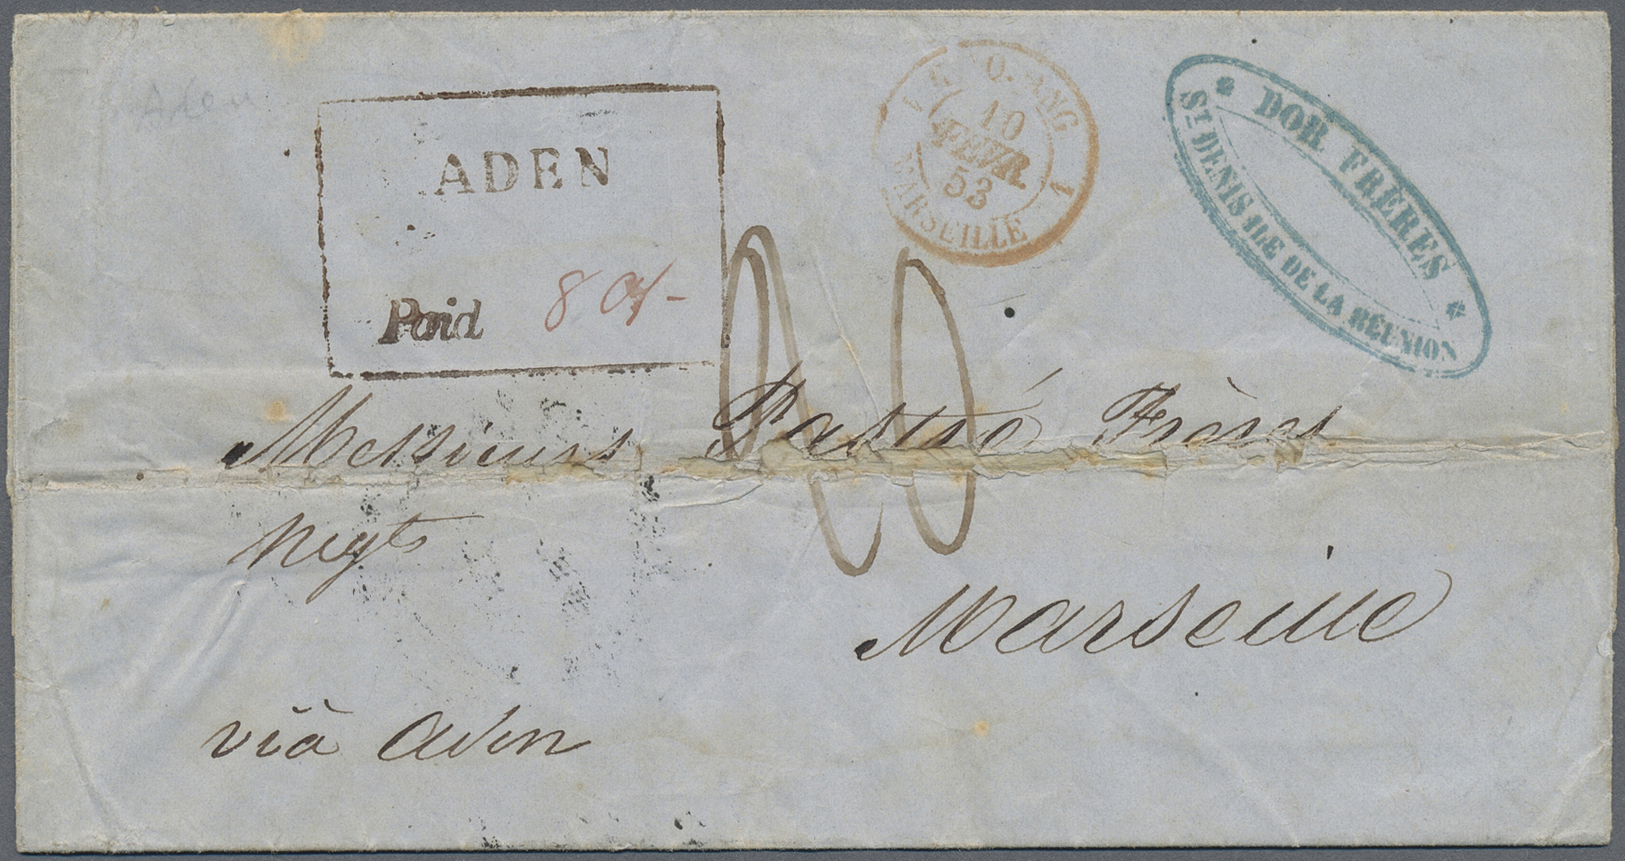 Aden
ADEN
Paid 8 a/-
10
FEVR.
53
MARSEILLE 1
* DOR FRÈRES *
ST DENIS ILE DE LA RÉUNION
20
Messieurs Pastré Frères
Negts
Marseille
viâ Aden